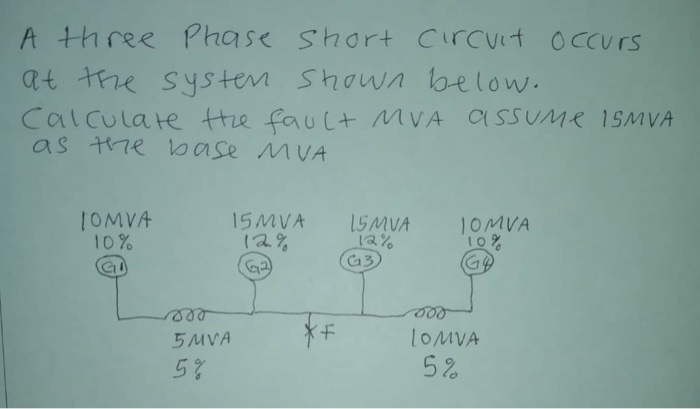 A three Phase short Circuit occurs
at the system shown below.
Calculate the fault MVA assume 15MVA
as the base MVA
10MVA 15MVA 15MVA 10MVA
10% 12% 12% 10%
G1 G2 G3 G4
5MVA F 10MVA
5% 5%